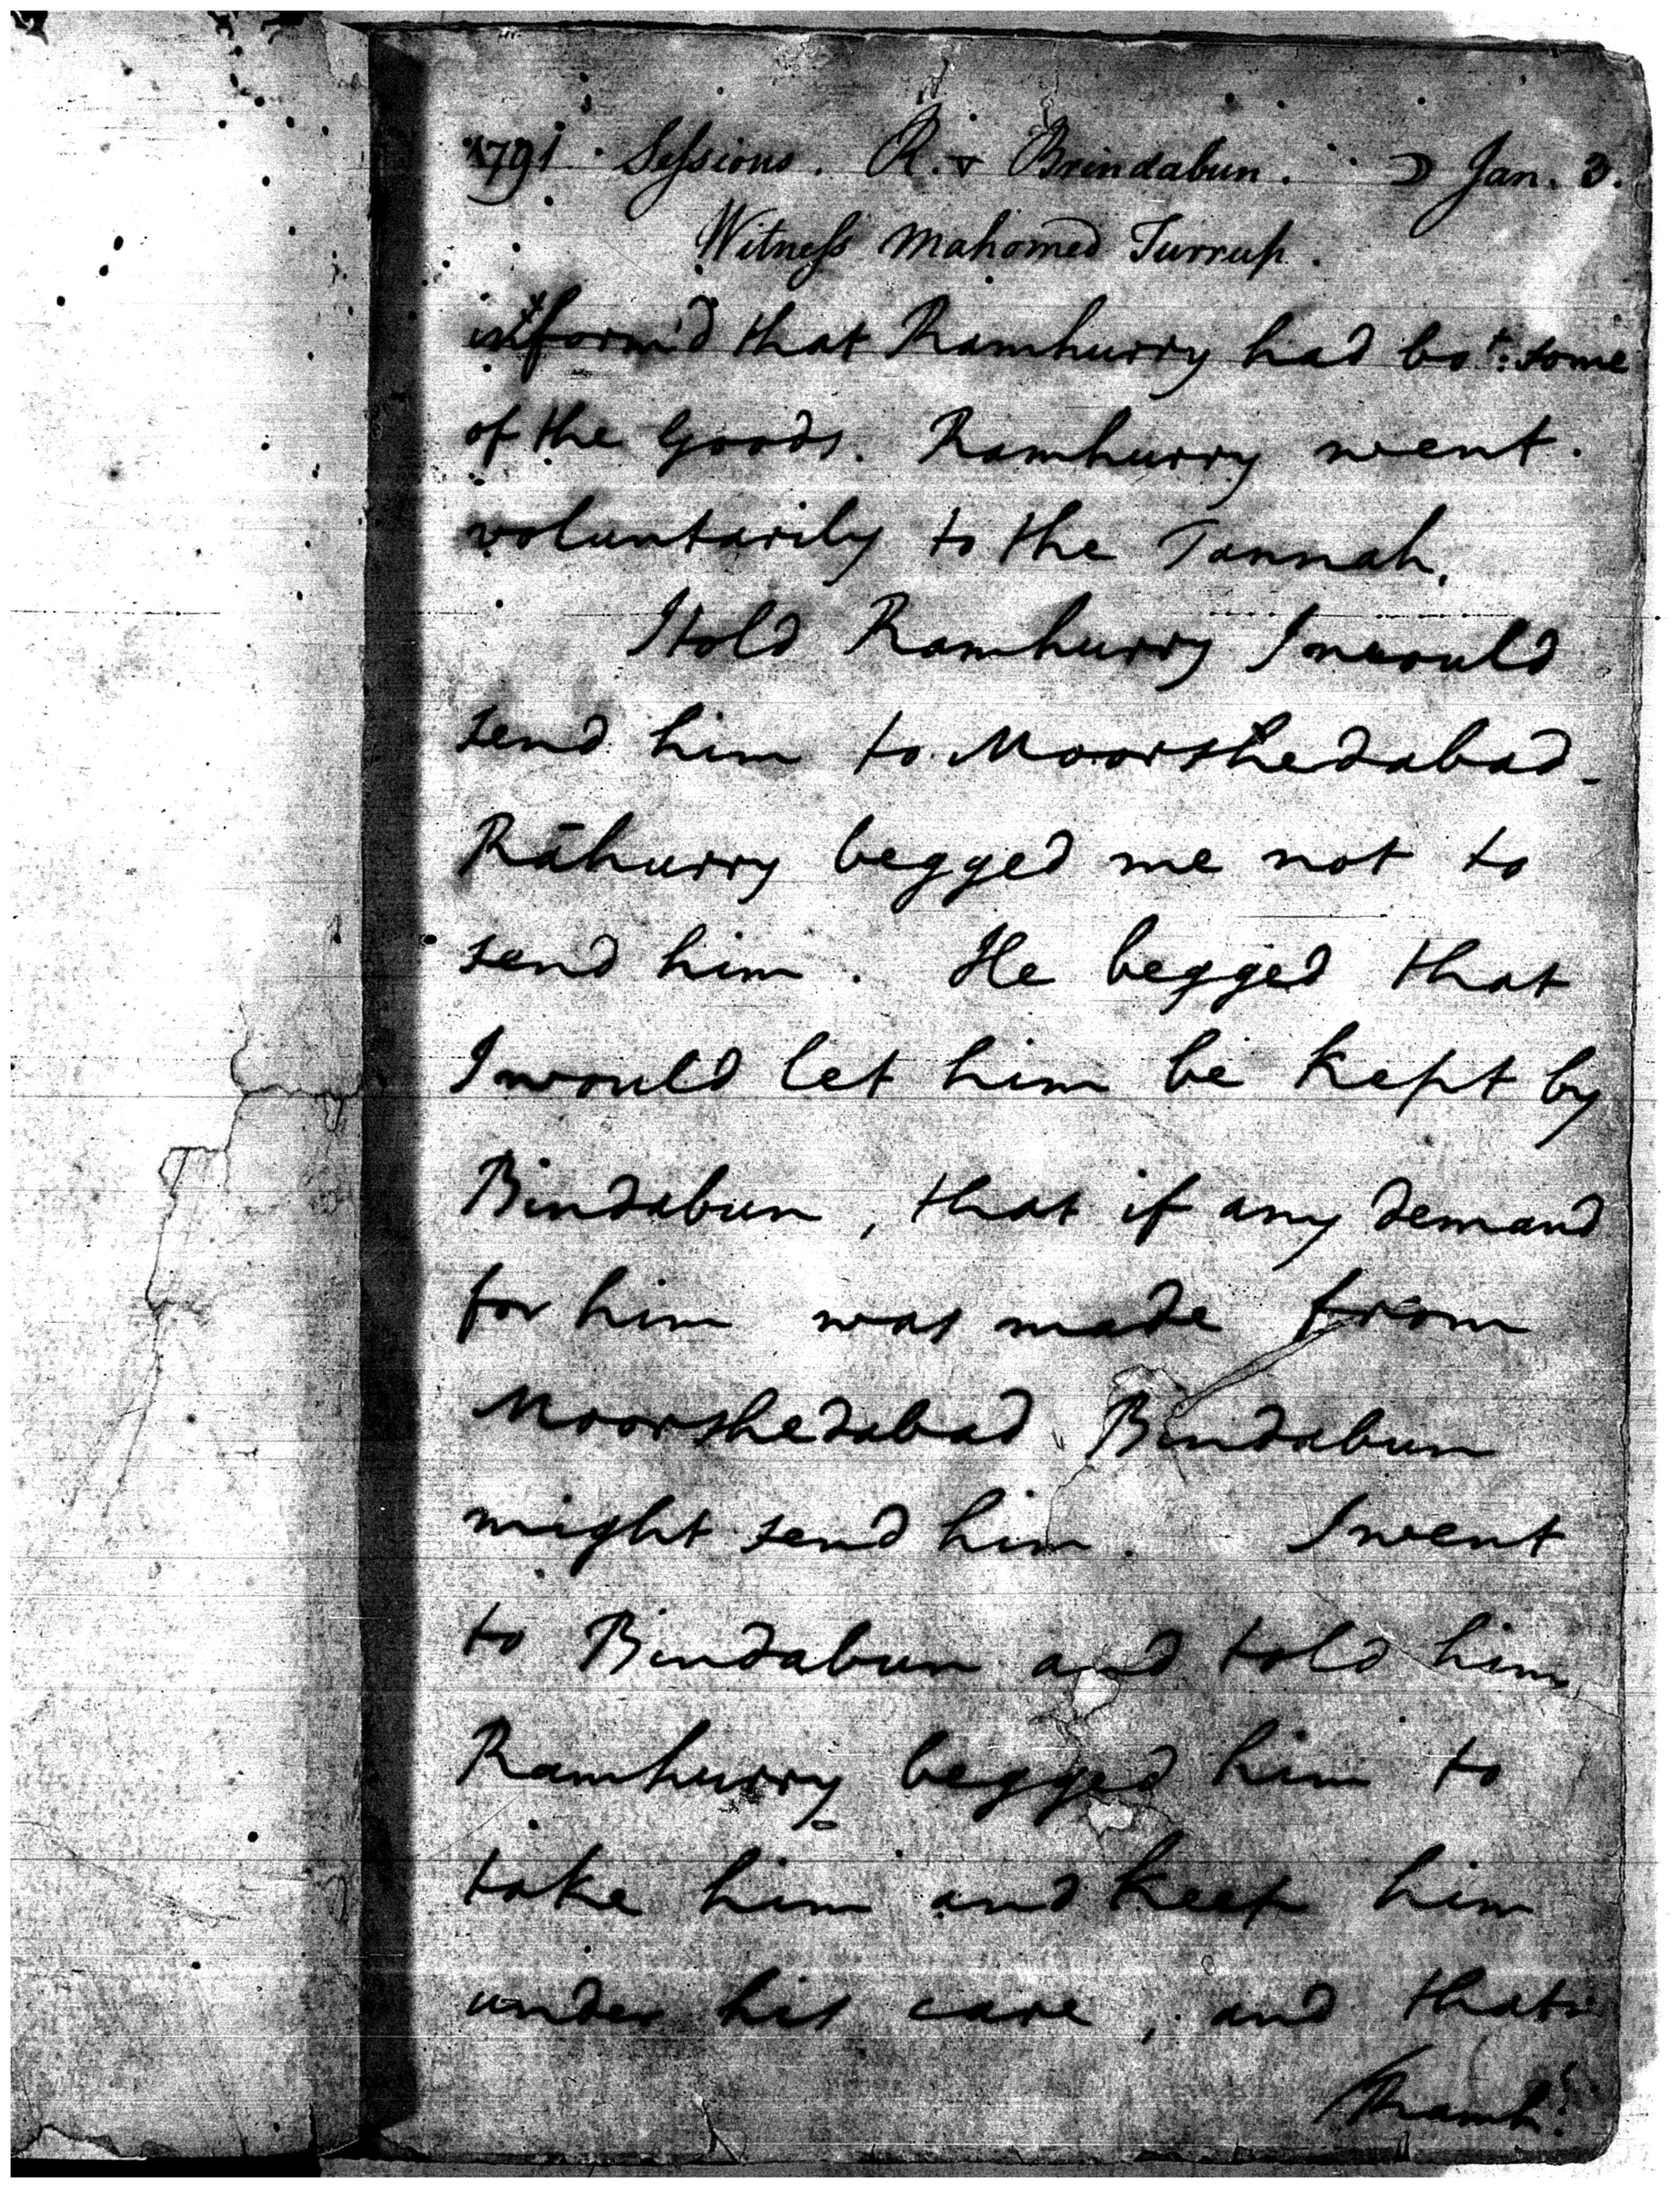 1791 . Sessions . R. v Brindabun . ☽ Jan. 3.
Witness Mahomed Turrup .
inform'd that Ramhurry had bot. some
of the Goods. Ramhurry went
voluntarily to the Tannah.
I told Ramhurry I would
send him to Moorshedabad.
Rāhurry begged me not to
send him . He begged that
I would let him be kept by
Bindabun , that if any demand
for him was made from
Moorshedabad Bindabun
might send him . I went
to Bindabun and told him
Ramhurry begged him to
take him and keep him
under his care , and that
Ramh: